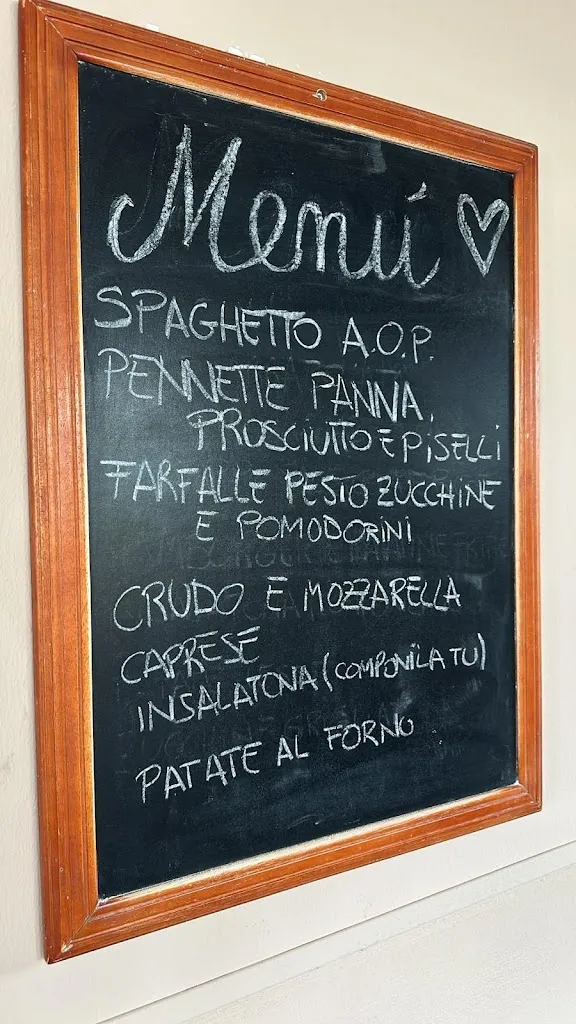 Menú
SPAGHETTO A.O.P.
PENNETTE PANNA,
PROSCIUTTO E PISELLI
FARFALLE PESTO ZUCCHINE
E POMODORINI
CRUDO E MOZZARELLA
CAPRESE
INSALATONA (COMPONILA TU)
PATATE AL FORNO